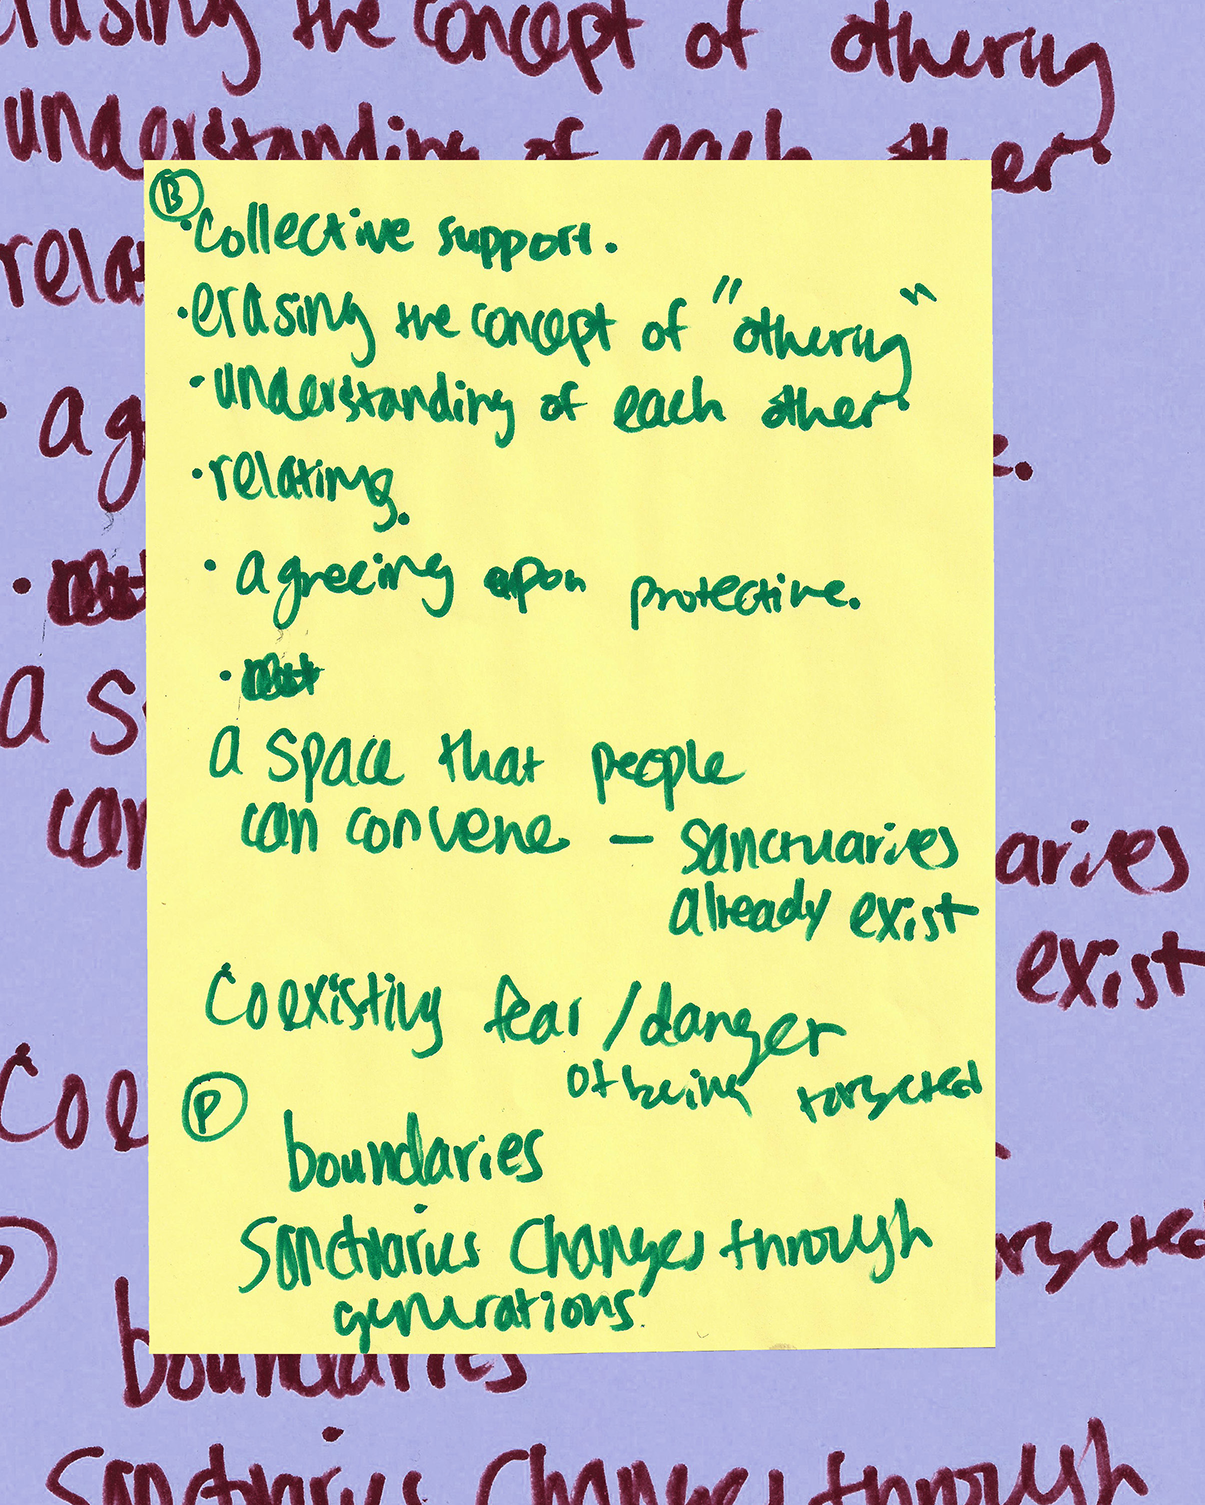 erasing the concept of othering
understanding of each other
B
• collective support.
• erasing the concept of "othering"
• understanding of each other.
• relating.
• agreeing upon protective.
•
a space that people
can convene – sanctuaries
already exist
Coexisting fear / danger
of being targeted
P
boundaries
Sanctuaries Changes through
generations.
aries
exist
boundaries
Sanctuaries Changes through